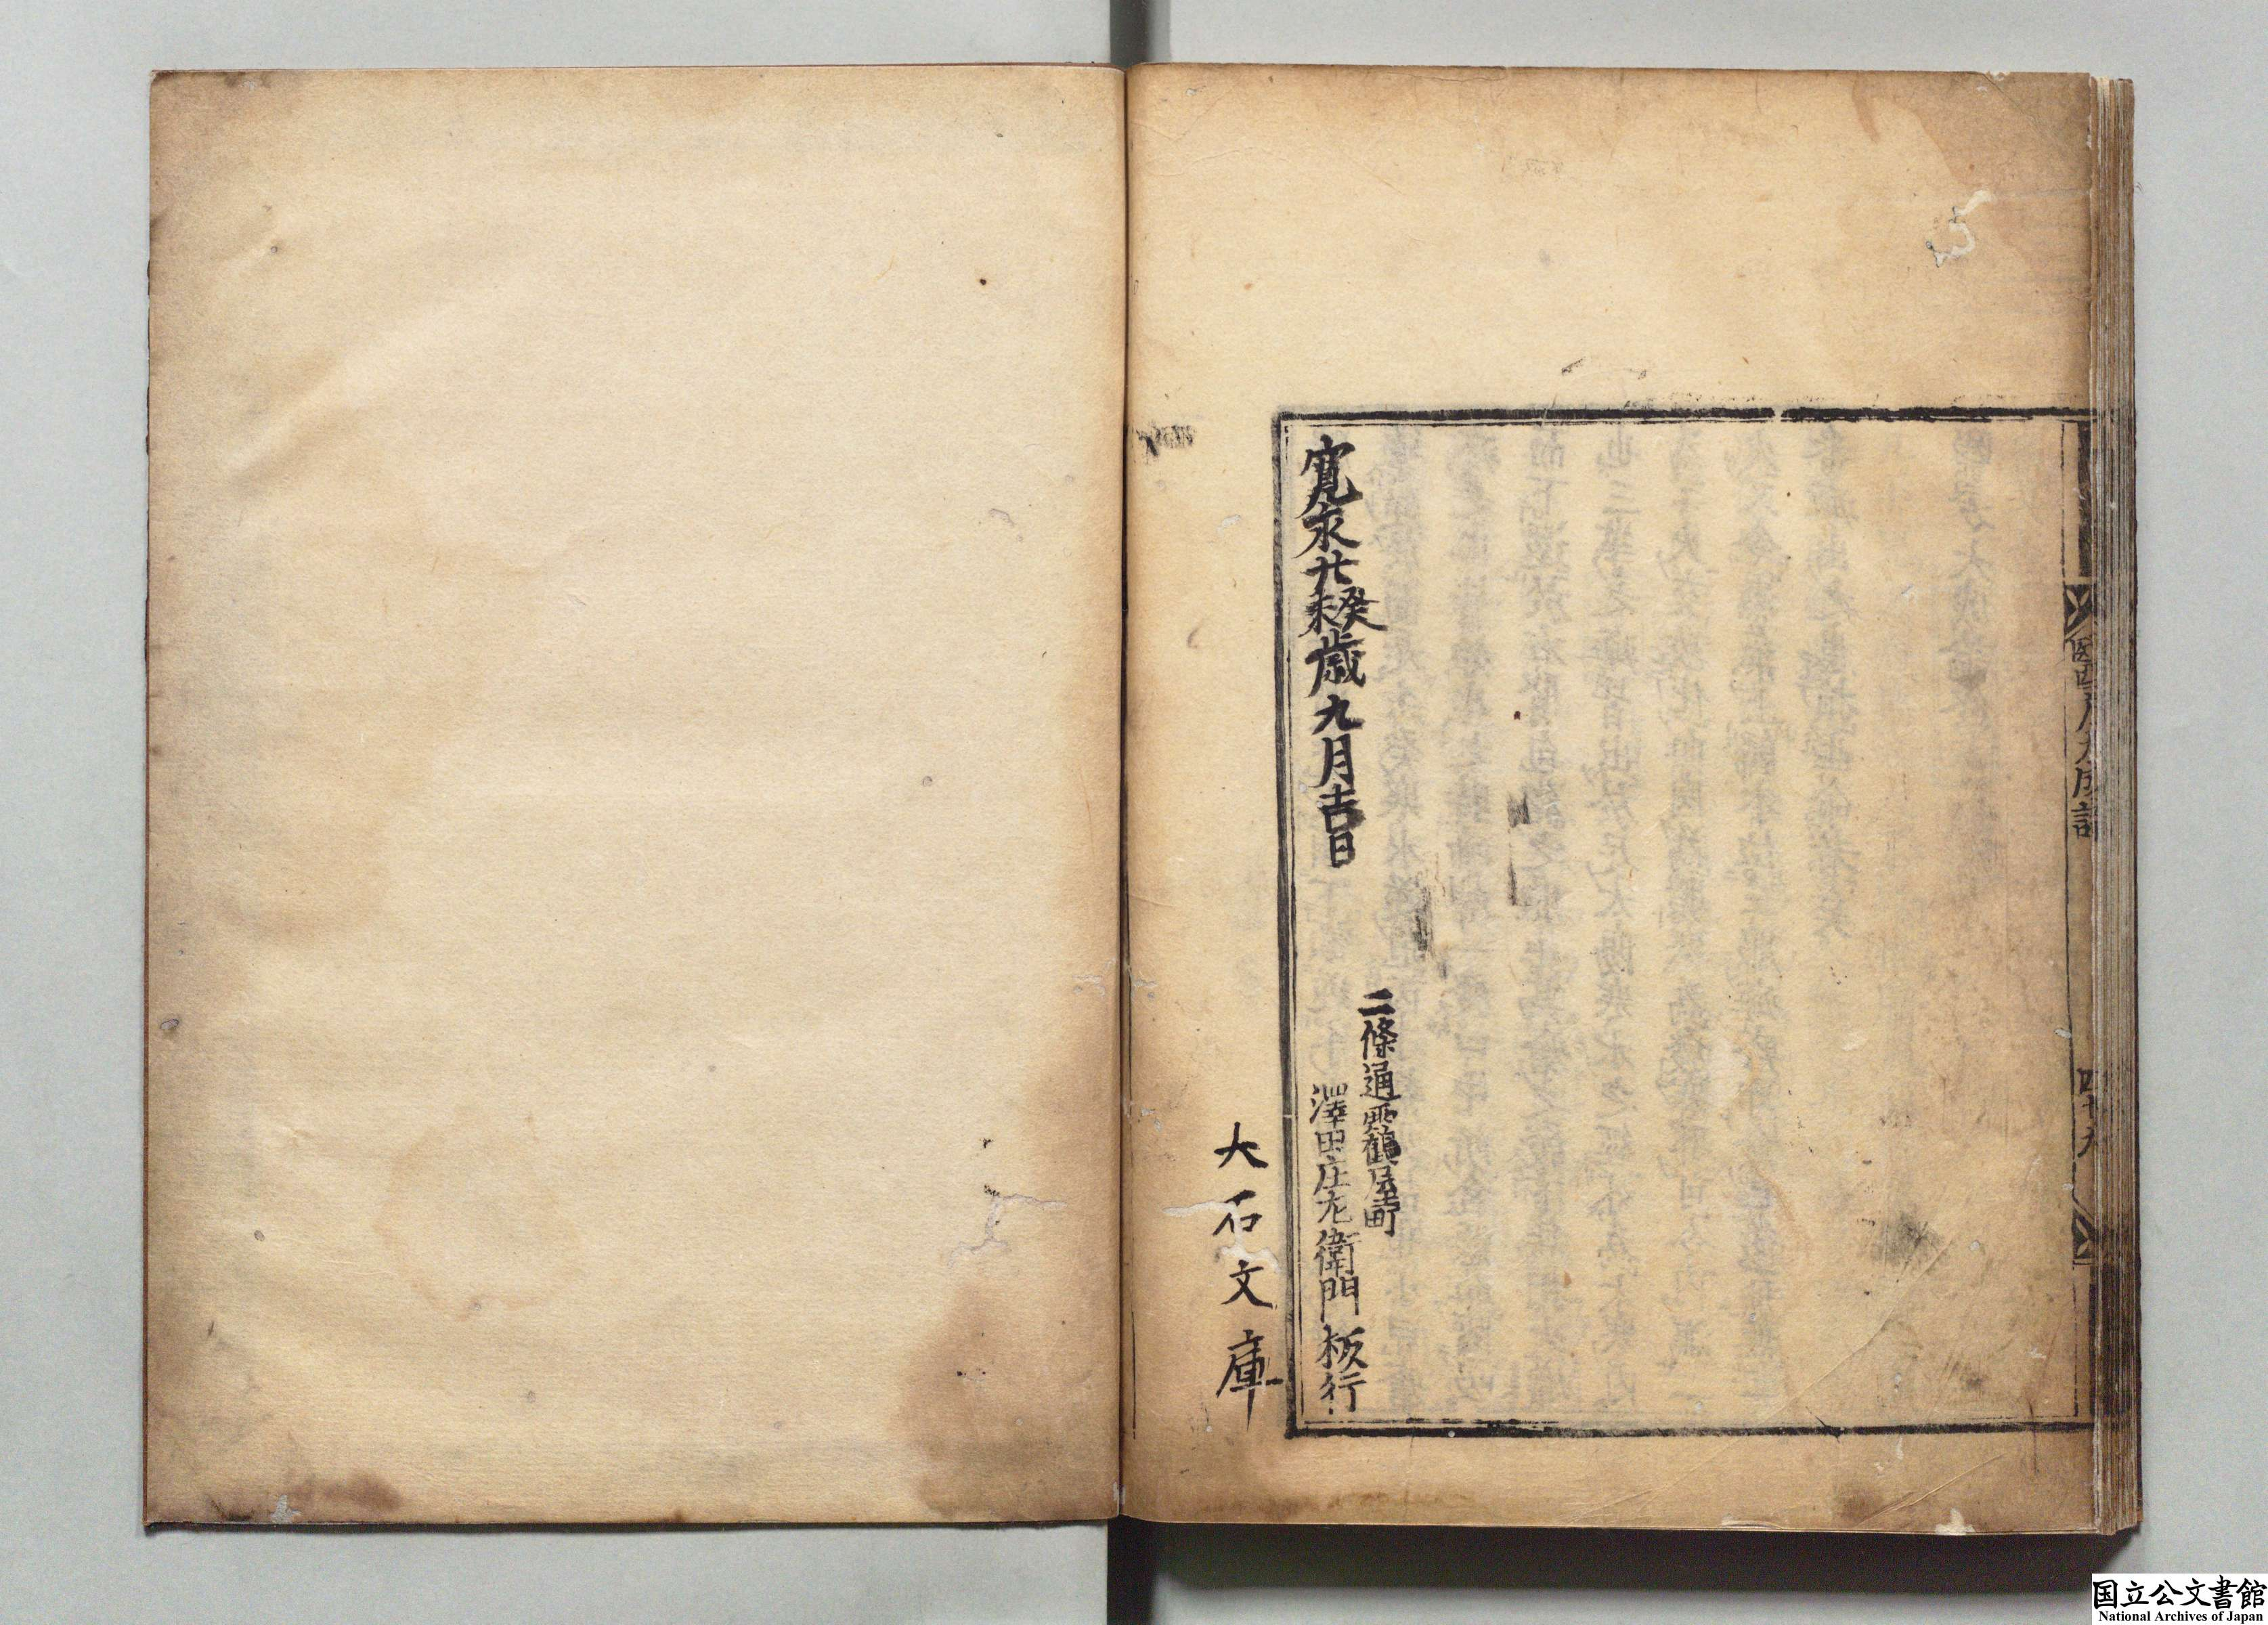 寛永廿癸未歳九月吉日
二條通靏屋町
澤田庄左衛門板行
大石文庫
国立公文書館
National Archives of Japan